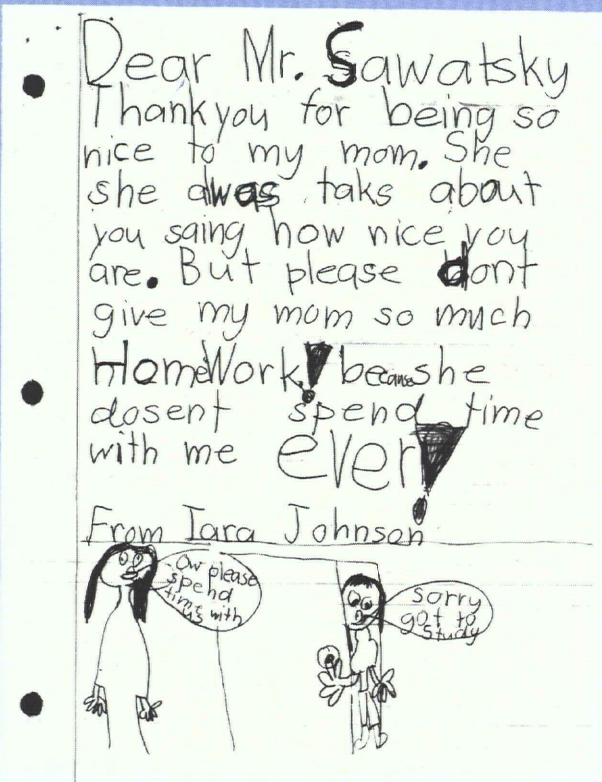 Dear Mr. Sawatsky
Thankyou for being so
nice to my mom. She
she alwas taks about
you saing how nice you
are. But please dont
give my mom so much
HomeWork! because she
dosent spend time
with me ever!
From Iara Johnson
Ow please
spend
time with
us
Sorry
got to
study